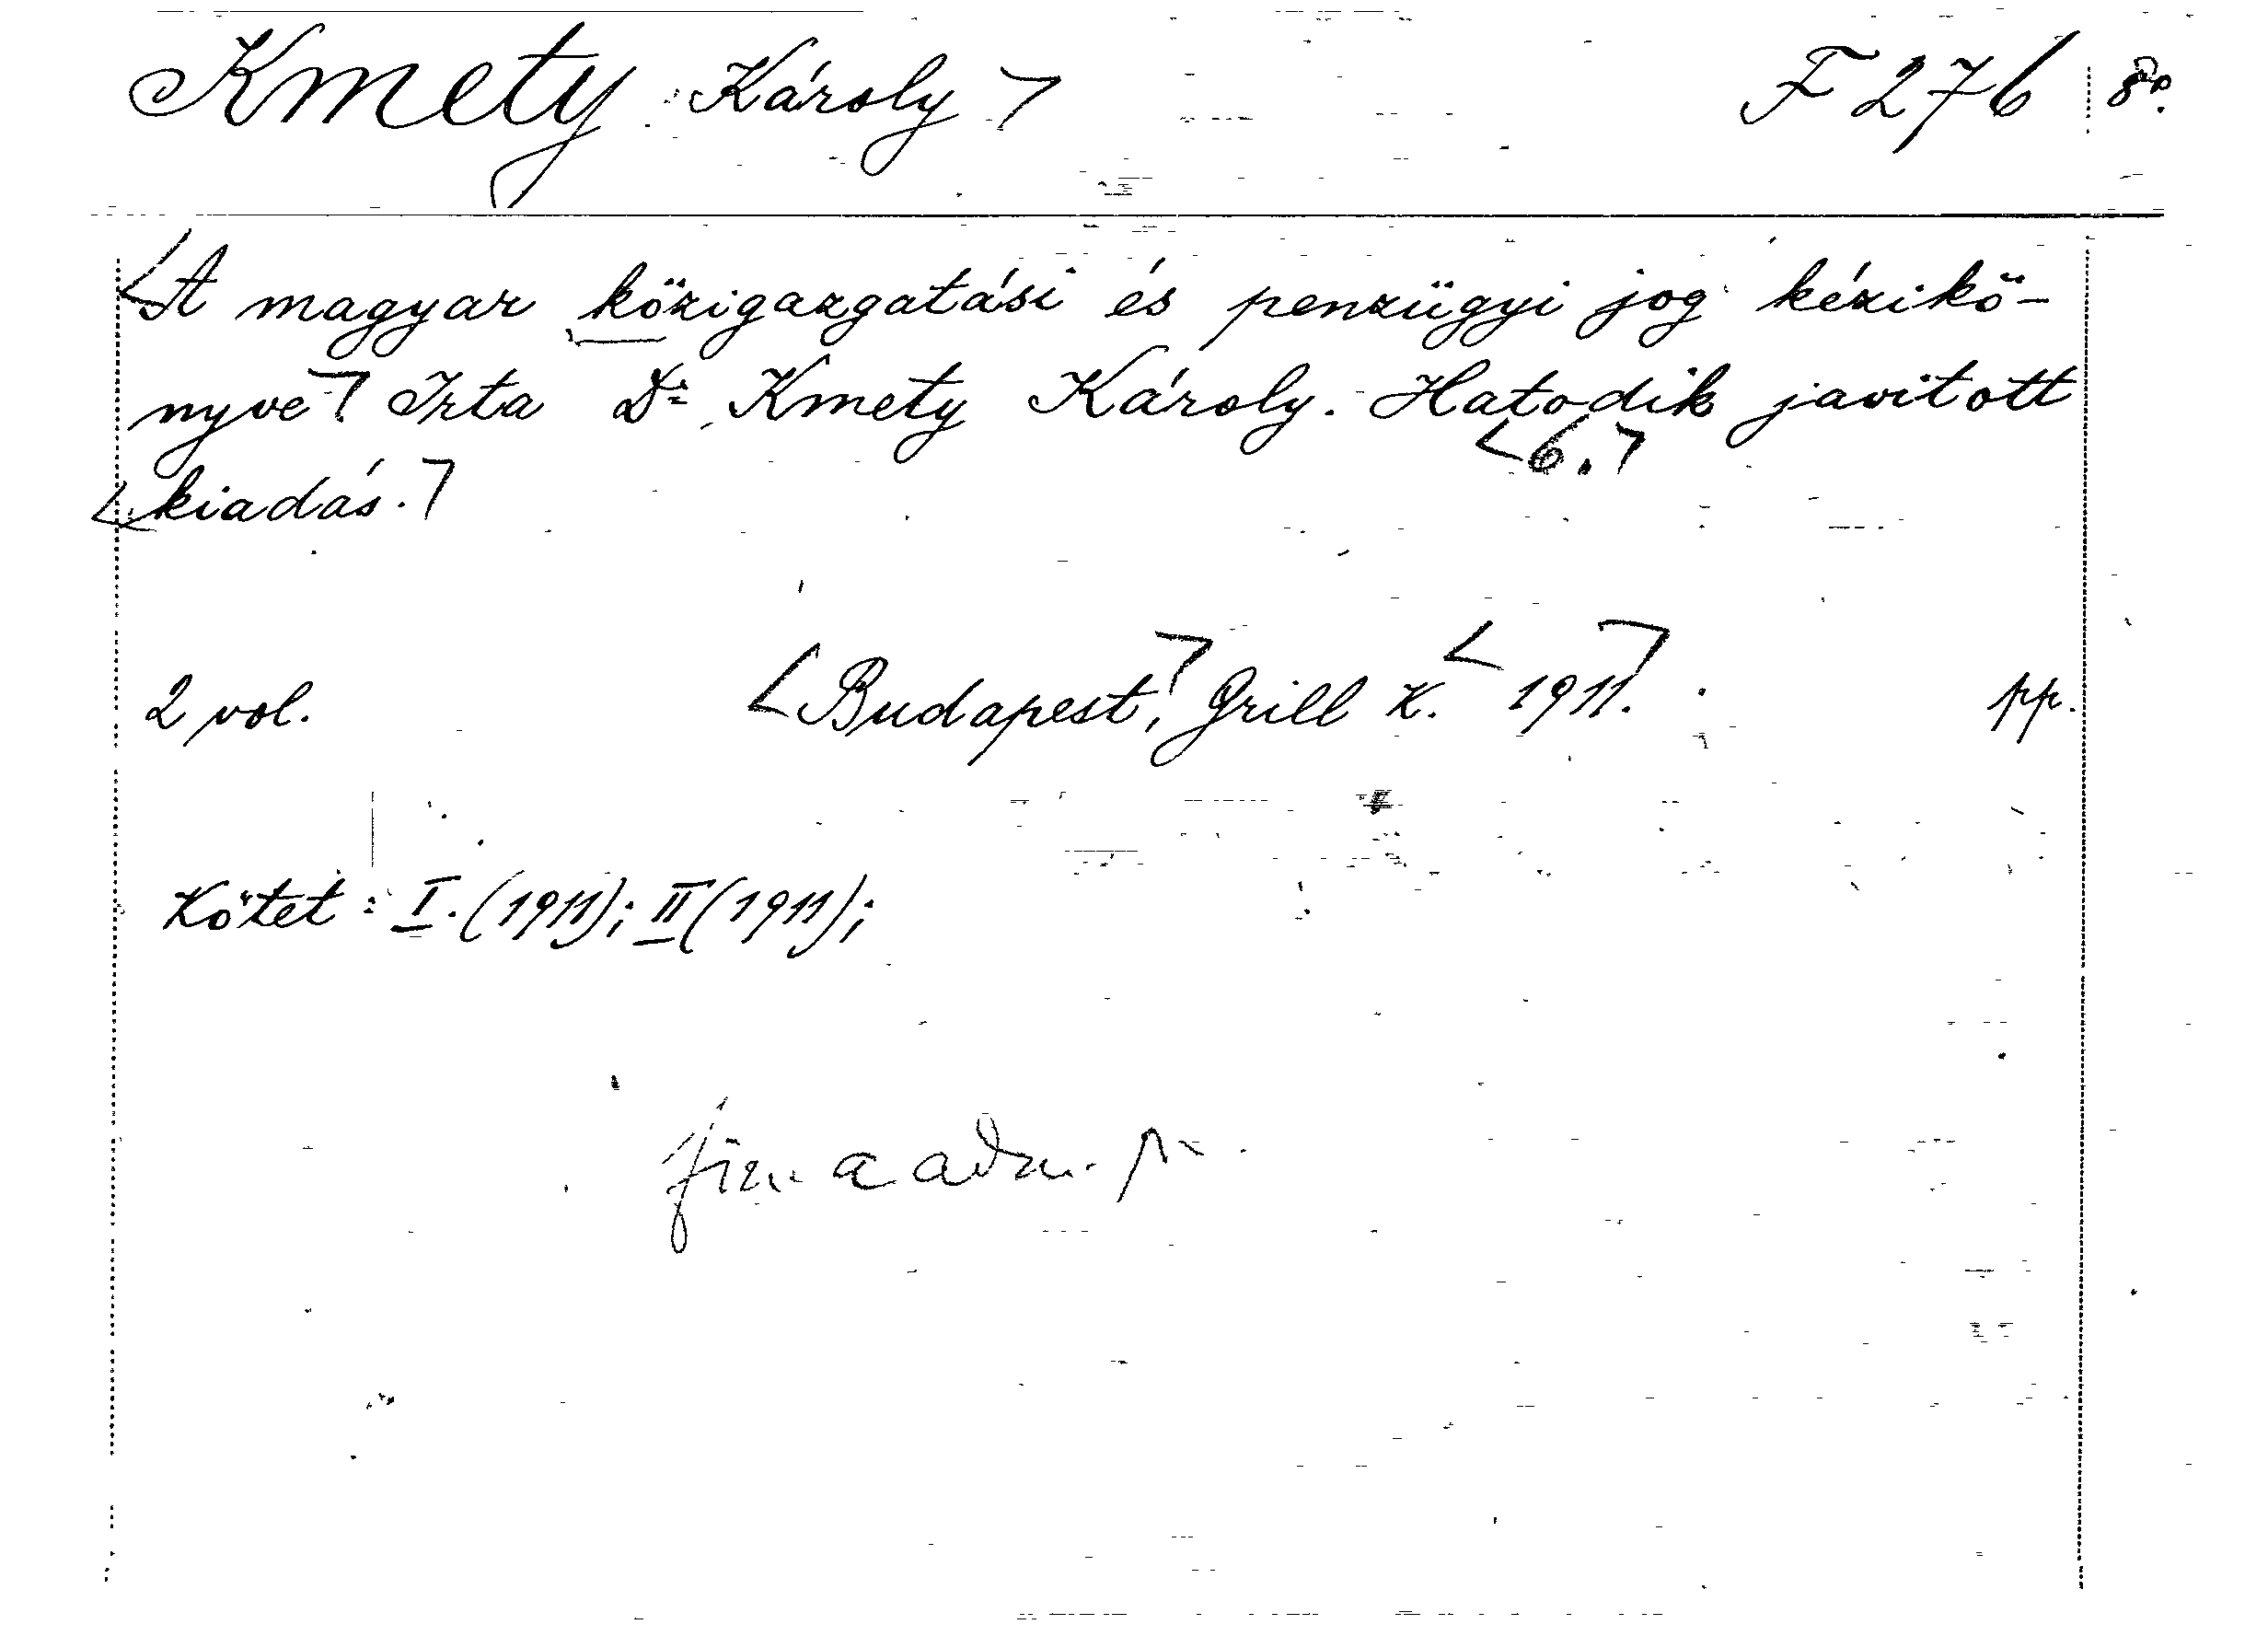 Kmety Károly ⌝ F 276 8°.
<A magyar közigazgatási és penzügyi jog kézikö-
nyve⌝ Irta Dr Kmety Károly. Hatodik javitott
<6.⌝
<kiadás.⌝
2 vol. <Budapest,⌝ Grill K. <1911.⌝ pp.
Kötet: I. (1911); II (1911);
a adm.